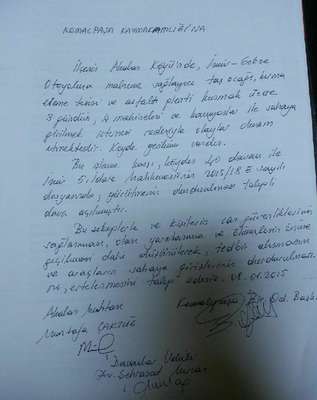 KEMALPAŞA KAYMAKAMLIĞI'NA
İlçeniz Akalan Köyünde, İzmir - Gebze
Otoyoluna malzeme sağlayacak taş ocağı, kırma
eleme tesisi ve asfalt plenti kurmak üzere
3 gündür, iş makineleri ve kamyonlar ile sahaya
girilmek istenmesi nedeniyle olaylar devam
etmektedir. Köyde gerilim vardır.
Bu işleme karşı, köylüler dava ile
İzmir 5. İdare Mahkemesinin 2015/18 E sayılı
dosyasında, yürütmenin durdurulması talepli
dava açılmıştır.
Bu sebeplerle ve kişilerin can güvenliklerinin
sağlanması, olası yaralanma ve ölümlerin önüne
geçilmesi daha düşünülerek, tedbir alınmasını
ve araçların sahaya girişlerinin durdurulması
nı, ertelenmesini talep ederiz. 08.01.2015
Akalan Muhtarı
Mustafa
Davacılar Vekili
Av. Şehrazat